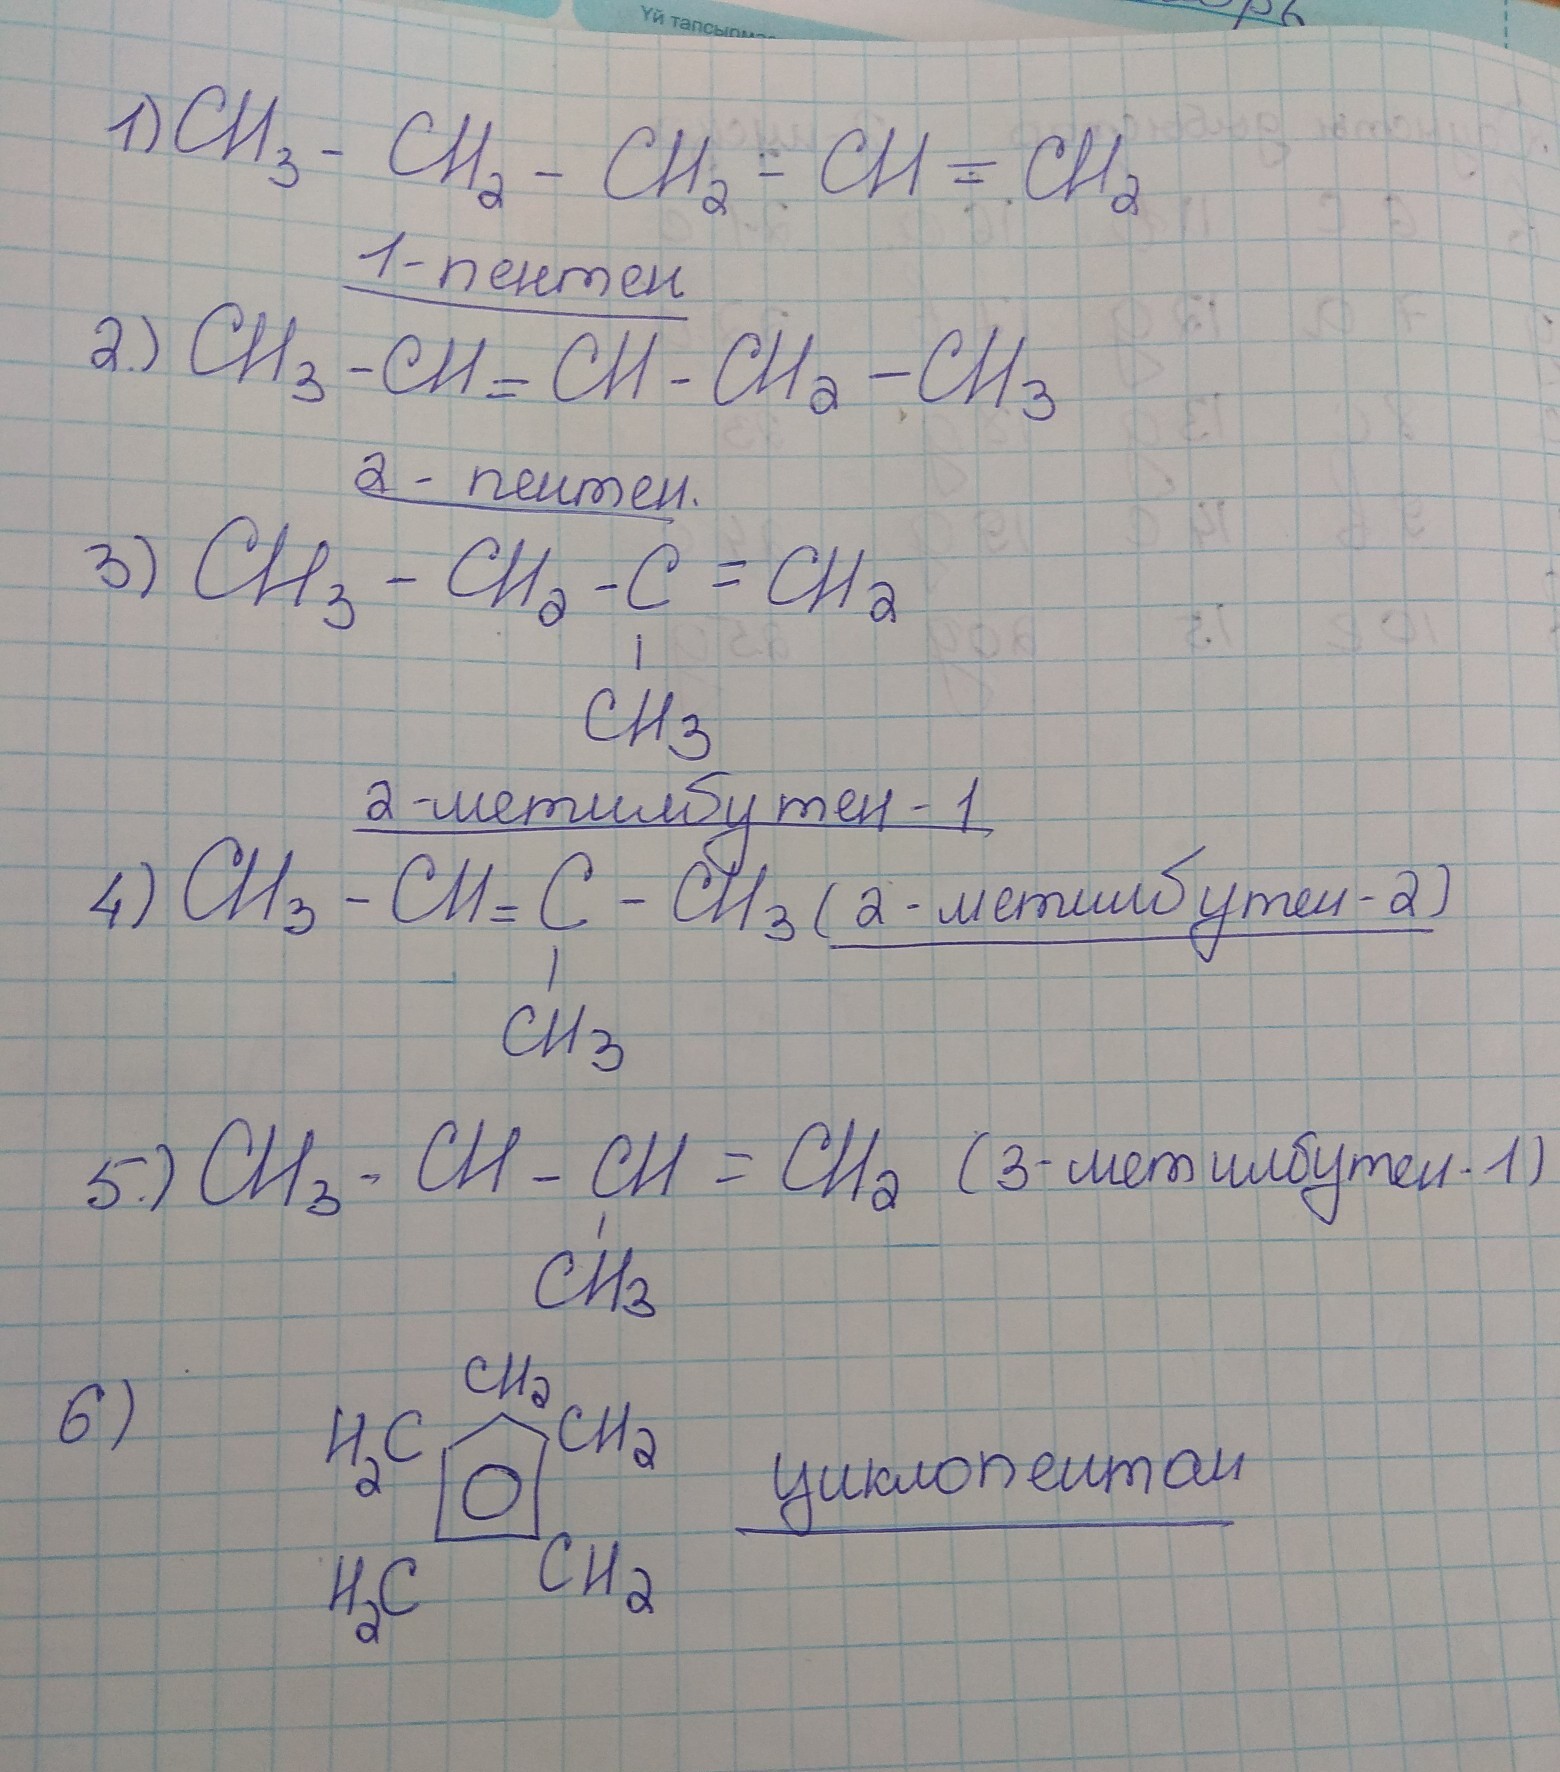 Үй тапсырмас
1) CH3 - CH2 - CH2 - CH = CH2
1-пентен
2.) CH3 - CH = CH - CH2 - CH3
2 - пентен.
3) CH3 - CH2 - C = CH2
CH3
2-метилбутен-1
4) CH3 - CH = C - CH3 (2-метилбутен-2)
CH3
5.) CH3 - CH - CH = CH2 (3-метилбутен-1)
CH3
6) CH2
H2C CH2
циклопентан
H2C CH2